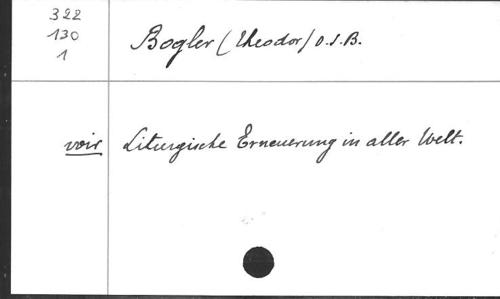 322
130
1
Bogler (Theodor) O.S.B.
voir Liturgische Erneuerung in aller Welt.